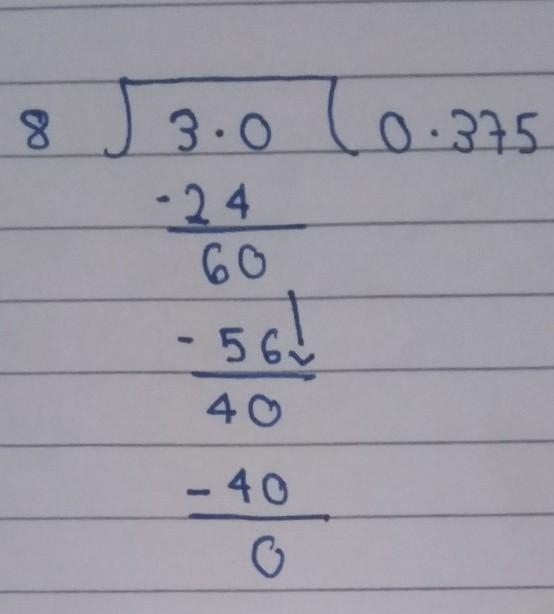 8 3.0 0.375
-24
60
-56
40
-40
0